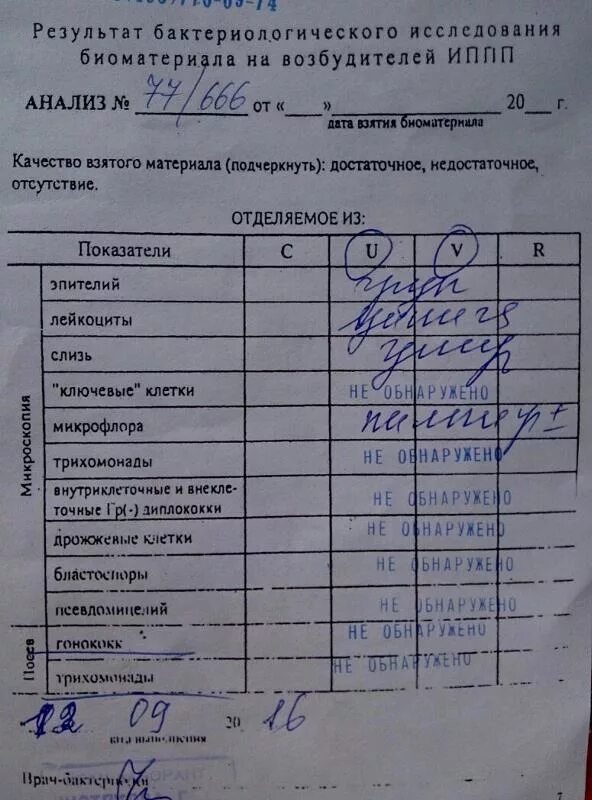 770-09-74
Результат бактериологического исследования
биоматериала на возбудителей ИППП
АНАЛИЗ № 77/666 от «___»____________ 20___ г.
дата взятия биоматериала
Качество взятого материала (подчеркнуть): достаточное, недостаточное,
отсутствие.
ОТДЕЛЯЕМОЕ ИЗ:
Показатели C U V R
Микроскопия
эпителий
лейкоциты
слизь
"ключевые" клетки НЕ ОБНАРУЖЕНО
микрофлора
трихомонады НЕ ОБНАРУЖЕНО
внутриклеточные и внекле-
точные Гр(-) диплококки НЕ ОБНАРУЖЕНО
дрожжевые клетки НЕ ОБНАРУЖЕНО
бластоспоры НЕ ОБНАРУЖЕНО
псевдомицелий НЕ ОБНАРУЖЕНО
Посев
гонококк НЕ ОБНАРУЖЕНО
трихомонады НЕ ОБНАРУЖЕНО
12 09 20 16
Врач-бактериолог